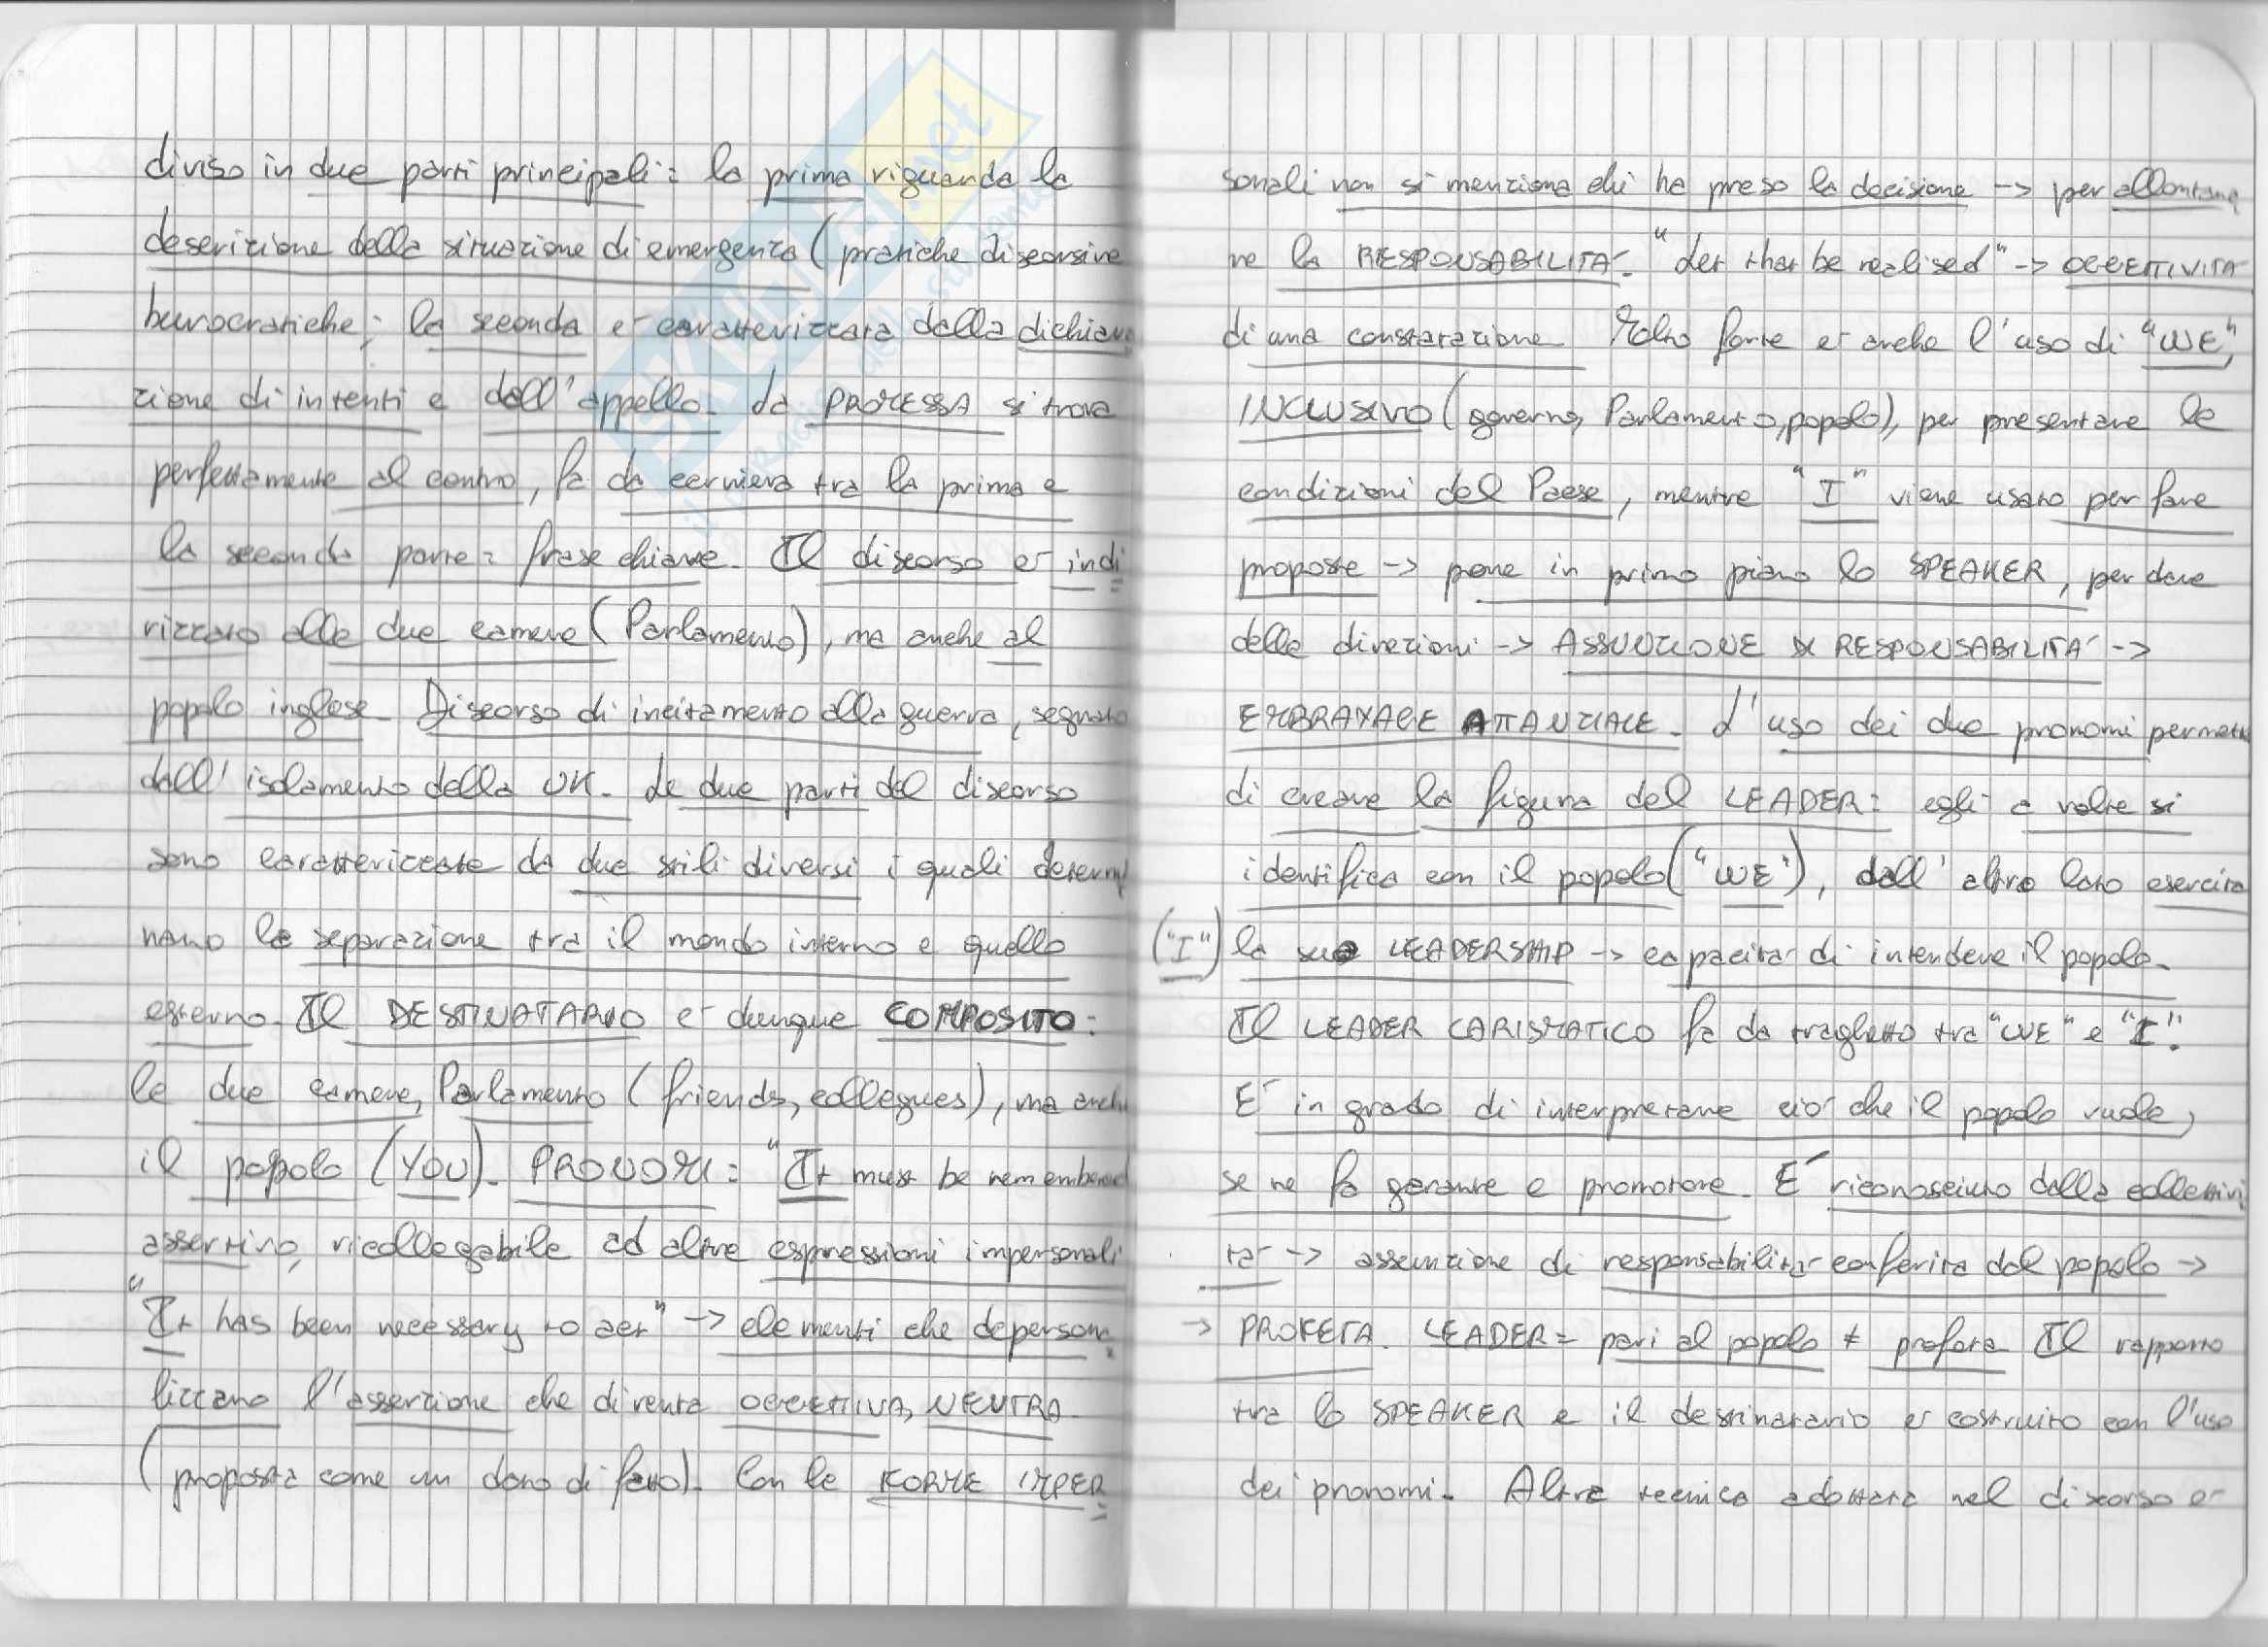 diviso in due parti principali: la prima riguarda la
descrizione della situazione di emergenza (pratiche discorsive
burocratiche; la seconda è caratterizzata dalla dichiara
zione di intenti e dall'appello. La PROMESSA si trova
perfettamente al centro, fa da cerniera tra la prima e
la seconda parte: frase chiave. Il discorso è indi
rizzato alle due camere (Parlamento), ma anche al
popolo inglese. Discorso di incitamento alla guerra, segnato
dall'isolamento della UK. Le due parti del discorso
sono caratterizzate da due stili diversi i quali determi
nano la separazione tra il mondo interno e quello
esterno. Il DESTINATARIO è dunque COMPOSITO:
le due camere, Parlamento (friends, collegues), ma anche
il popolo (YOU). PRONOMI: "It must be remembered
assertivo, ricollegabile ad altre espressioni impersonali
"It has been necessary to act" -> elementi che depersona
lizzano l'asserzione che diventa OGGETTIVA, NEUTRA
(proposta come un dono di fatto). Con le FORME IMPER
sonali non si menziona chi ha preso la decisione -> per allontana
re la RESPONSABILITÀ. "Let that be realised" -> OGGETTIVITÀ
di una constatazione Molto forte è anche l'uso di "WE",
INCLUSIVO (governo, Parlamento, popolo), per presentare le
condizioni del Paese, mentre "I" viene usato per fare
proposte -> pone in primo piano lo SPEAKER, per dare
delle direzioni -> ASSUNZIONE DI RESPONSABILITÀ ->
EMBRAYAGE ATTANZIALE. L'uso dei due pronomi permette
di creare la figura del LEADER: egli a volte si
identifica con il popolo ("WE"), dall'altro lato esercita
("I") la sua LEADERSHIP -> capacità di intendere il popolo.
Il LEADER CARISMATICO fa da traghetto tra "WE" e "I".
È in grado di interpretare ciò che il popolo vuole,
se ne fa garante e promotore. È riconosciuto dalla collettivi
tà -> assunzione di responsabilità conferita dal popolo ->
-> PROFETA. LEADER = pari al popolo ≠ profeta Il rapporto
tra lo SPEAKER e il destinatario è costruito con l'uso
dei pronomi. Altra tecnica adottata nel discorso è
SKUOLA.net